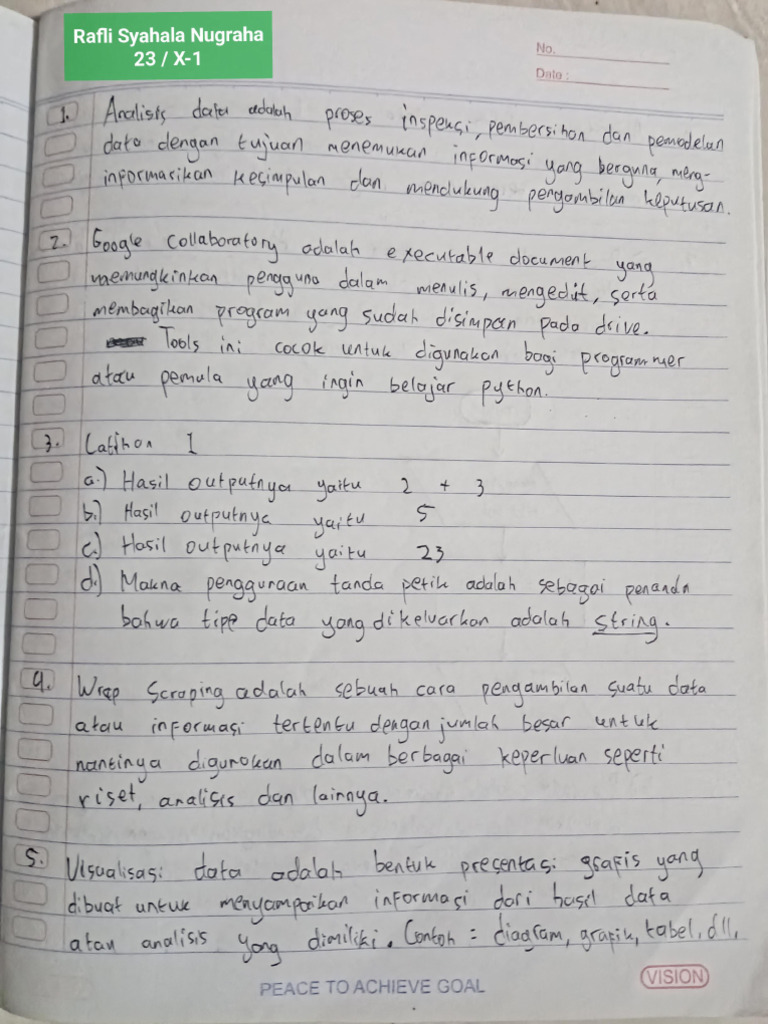 Rafli Syahala Nugraha
23 / X-1
No.
Date :
1. Analisis data adalah proses inspeksi, pembersihan dan pemodelan
data dengan tujuan menemukan informasi yang berguna, meng-
informasikan kesimpulan dan mendukung pengambilan keputusan.
2. Google Collaboratory adalah executable document yang
memungkinkan pengguna dalam menulis, mengedit, serta
membagikan program yang sudah disimpan pada drive.
Tools ini cocok untuk digunakan bagi programmer
atau pemula yang ingin belajar python.
3. Latihan 1
a.) Hasil outputnya yaitu 2 + 3
b.) Hasil outputnya yaitu 5
c.) Hasil outputnya yaitu 23
d.) Makna penggunaan tanda petik adalah sebagai penanda
bahwa tipe data yang dikeluarkan adalah string.
4. Wrap Scraping adalah sebuah cara pengambilan suatu data
atau informasi tertentu dengan jumlah besar untuk
nantinya digunakan dalam berbagai keperluan seperti
riset, analisis dan lainnya.
5. Visualisasi data adalah bentuk presentasi grafis yang
dibuat untuk menyampaikan informasi dari hasil data
atau analisis yang dimiliki. Contoh = diagram, grafik, tabel, dll,
PEACE TO ACHIEVE GOAL
VISION